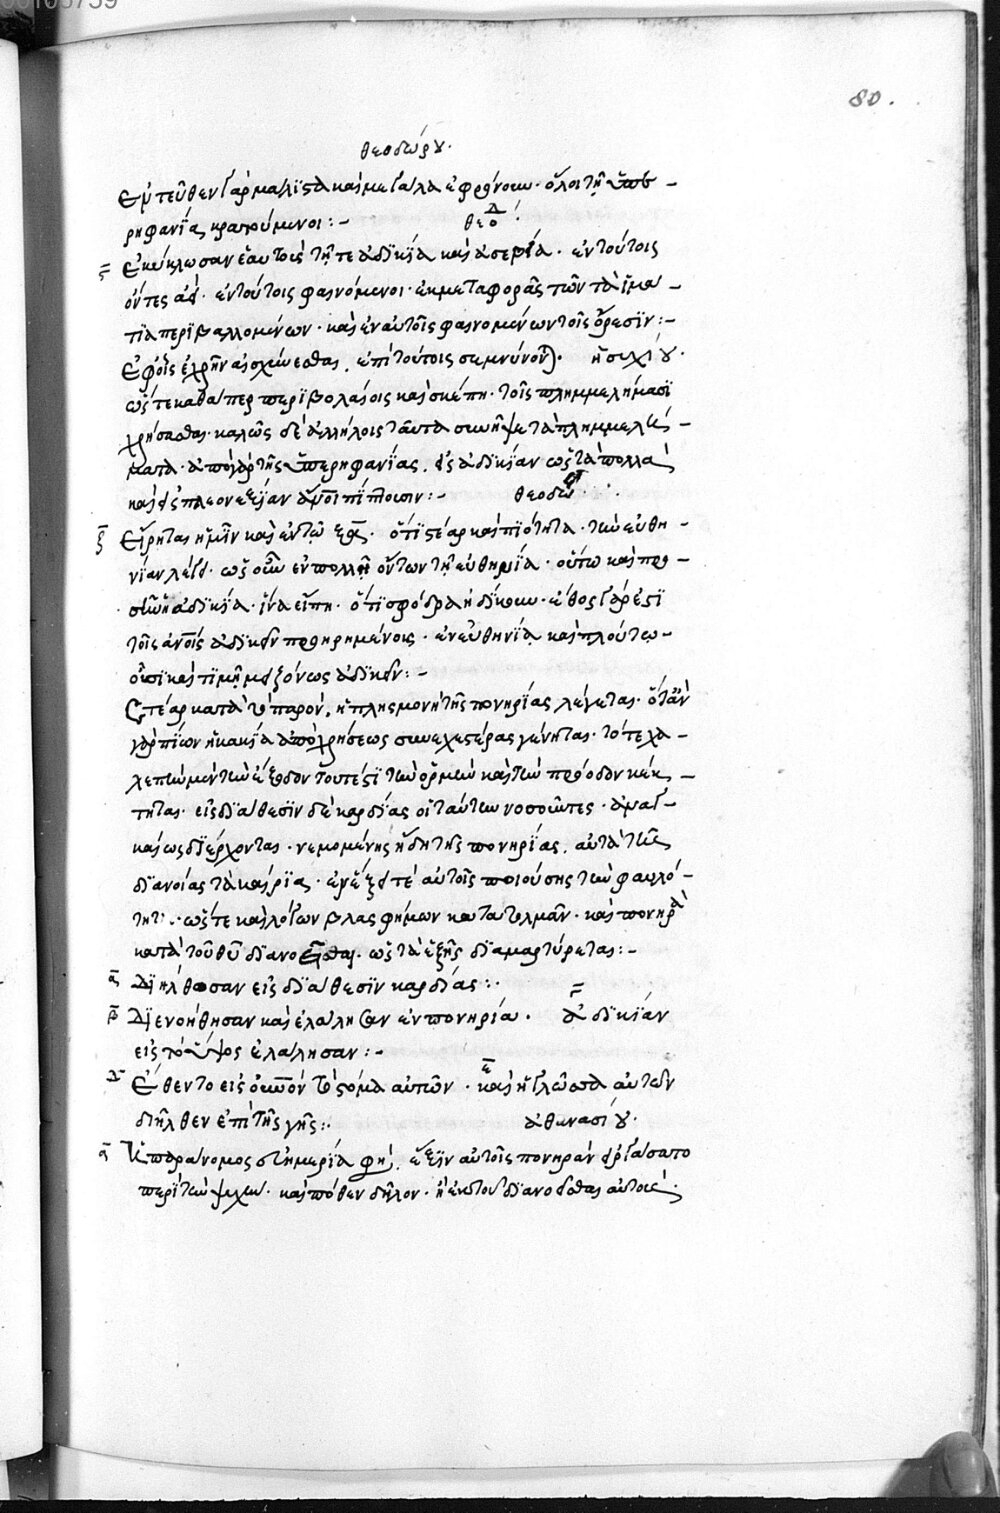 80.
θεοδώρου.
Ἐντεῦθεν γὰρ μάλιστα καὶ μεγάλα ἐφρόνουν· ὅλοι τῇ ὑπε-
ρηφανίᾳ κρατούμενοι:-
θεοδ
Ἐκύκλωσαν ἑαυτοὺς τῇ τε ἀδικίᾳ καὶ ἀσεβείᾳ· ἐν τούτοις
ὄντες ἀεί· ἐν τούτοις φαινόμενοι· ἐκ μεταφορᾶς τῶν τὰ ἱμά-
τια περιβαλλομένων· καὶ ἐν αὐτοῖς φαινομένων τοῖς ὁρῶσιν:-
Ἐφ' οἷς ἐχρῆν αἰσχύνεσθαι, ἐπὶ τούτοις σεμνύνονται. ἡσυχίου.
ὥστε καθάπερ περιβολαίοις καὶ σκέπῃ· τοῖς πλημμελήμασι
χρήσασθαι· καλῶς δὲ ἀλλήλοις ταῦτα συνῆψε τὰ πλημμελή-
ματα· ἀπὸ γὰρ τῆς ὑπερηφανίας, εἰς ἀδικίαν ὡς τὰ πολλὰ
καὶ εἰς πλεονεξίαν ἄνοι πίπτουσιν:-
θεοδώ
ζ Εἴρηται ἡμῖν καὶ ἐν τῷ ὅτι στέαρ καὶ πιότητα· τὴν εὐθη-
νίαν λέγει· ὡς οὖν ἐν πολλῇ ὄντων τῇ εὐθηνίᾳ· οὕτω καὶ προ-
ἀδικία· ἵνα εἴπῃ· ὅτι σφόδρα ἠδίκουν· ἔθος γάρ ἐστι
τοῖς ἀνοις ἀδικεῖν προῃρημένοις· ἐν εὐθηνίᾳ καὶ πλούτῳ-
οὖσι καὶ τιμῇ μειζόνως ἀδικεῖν:-
Στέαρ κατὰ τὸ παρόν, ἡ πλησμονὴ τῆς πονηρίας λέγεται· ὅταν
γὰρ πίων ἡ κακία ἀπὸ χρήσεως συνεχεστέρας γένηται· τότε χα-
λεπὴν μὲν τὴν ἔξοδον τουτέστι τὴν ὁρμὴν καὶ τὴν πρόοδον κέκ-
τηται· εἰς διάθεσιν δὲ καρδίας οἱ ταύτην νοσοῦντες· ἀναγ-
καίως διέρχονται· νεμομένης ἤδη τῆς πονηρίας, αὐτὰ τῆς
διανοίας τὰ καίρια· ἐν ἕξει τε αὐτοῖς ποιούσης τὴν φαυλό-
τητα· ὥστε καὶ λόγων βλασφήμων κατατολμᾶν· καὶ πονηρὰ
κατὰ τοῦ θυ διανοεῖσθαι· ὡς τὰ ἑξῆς διαμαρτύρεται:-
α Διήλθοσαν εἰς διάθεσιν καρδίας:.
β Διενοήθησαν καὶ ἐλάλησαν ἐν πονηρίᾳ. ἀδικίαν
εἰς τὸ ὕψος ἐλάλησαν:-
δ Ἔθεντο εἰς οὐνον τὸ στόμα αὐτῶν· ε καὶ ἡ γλῶσσα αὐτῶν
διῆλθεν ἐπὶ τῆς γῆς:.
ἀθανασίου.
α παράνομος συνημερία φησὶ, ἕξιν αὐτοῖς πονηρὰν εἰργάσατο
περὶ τὴν ψυχὴν· καὶ πόθεν δῆλον· ἢ ἐκ τοῦ διανοεῖσθαι αὐτοὺς.